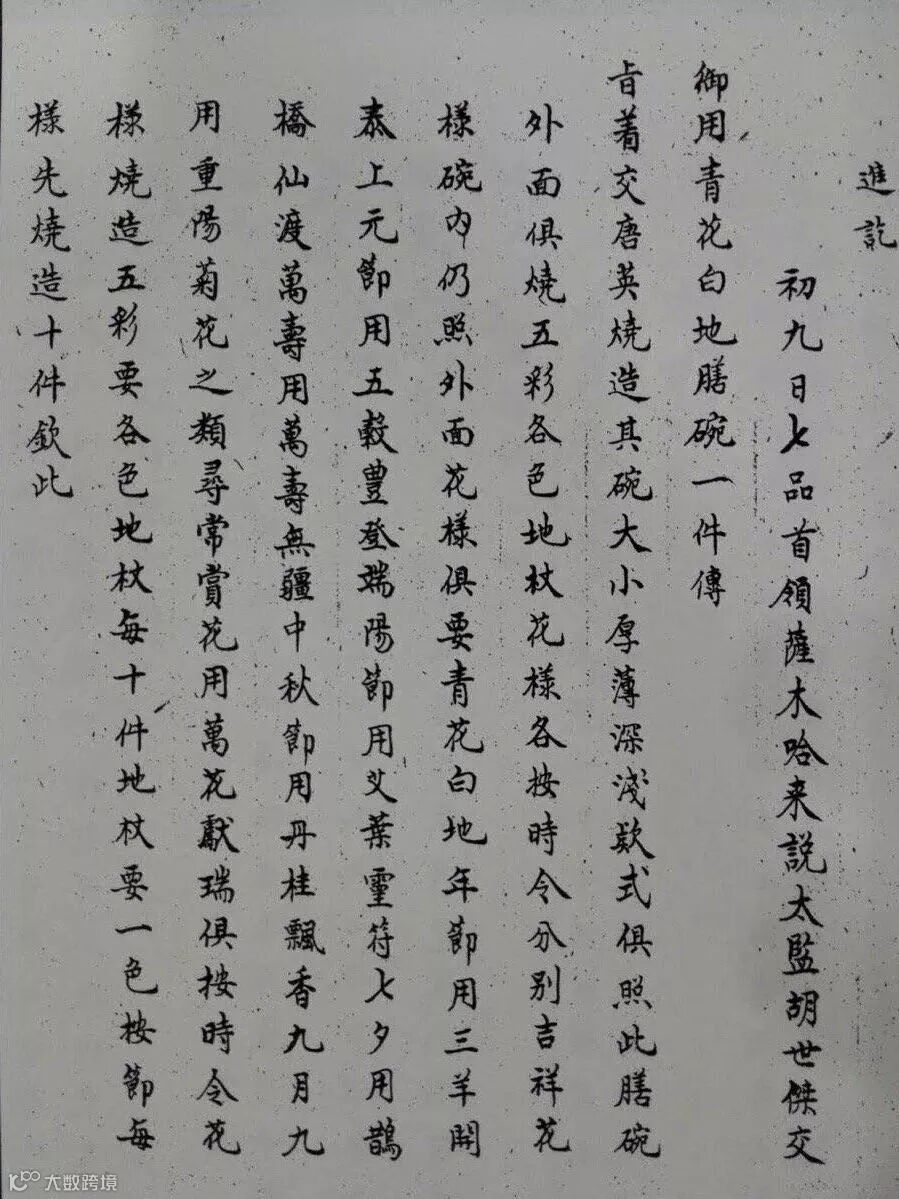 進訖
初九日七品首領薩木哈来説太監胡世傑交
御用青花白地膳碗一件傳
旨着交唐英燒造其碗大小厚薄深淺欵式俱照此膳碗
外面俱燒五彩各色地杖花樣各按時令分别吉祥花
樣碗内仍照外面花樣俱要青花白地年節用三羊開
泰上元節用五穀豊登端陽節用艾葉靈符七夕用鵲
橋仙渡萬壽用萬壽無疆中秋節用丹桂飄香九月九
用重陽菊花之類尋常賞花用萬花獻瑞俱按時令花
樣燒造五彩要各色地杖每十件地杖要一色按節每
樣先燒造十件欽此
大数跨境